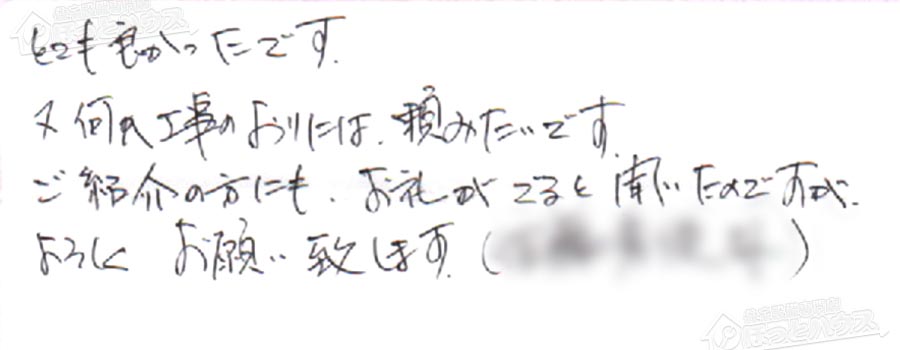 とても良かったです.
又何か工事のおりには、頼みたいです.
ご紹介の方にも、お礼がでると聞いたのですが、
よろしくお願い致します.(
)
ほっとハウス
ほっとハウス